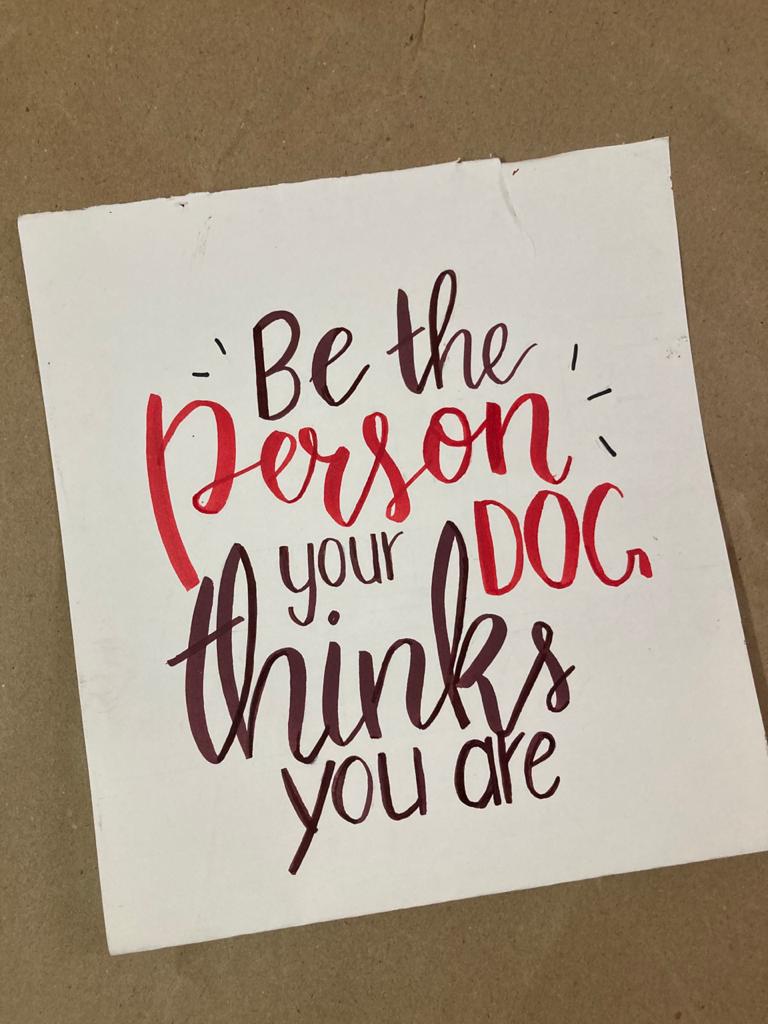 Be the
person
your DOG
thinks
you are